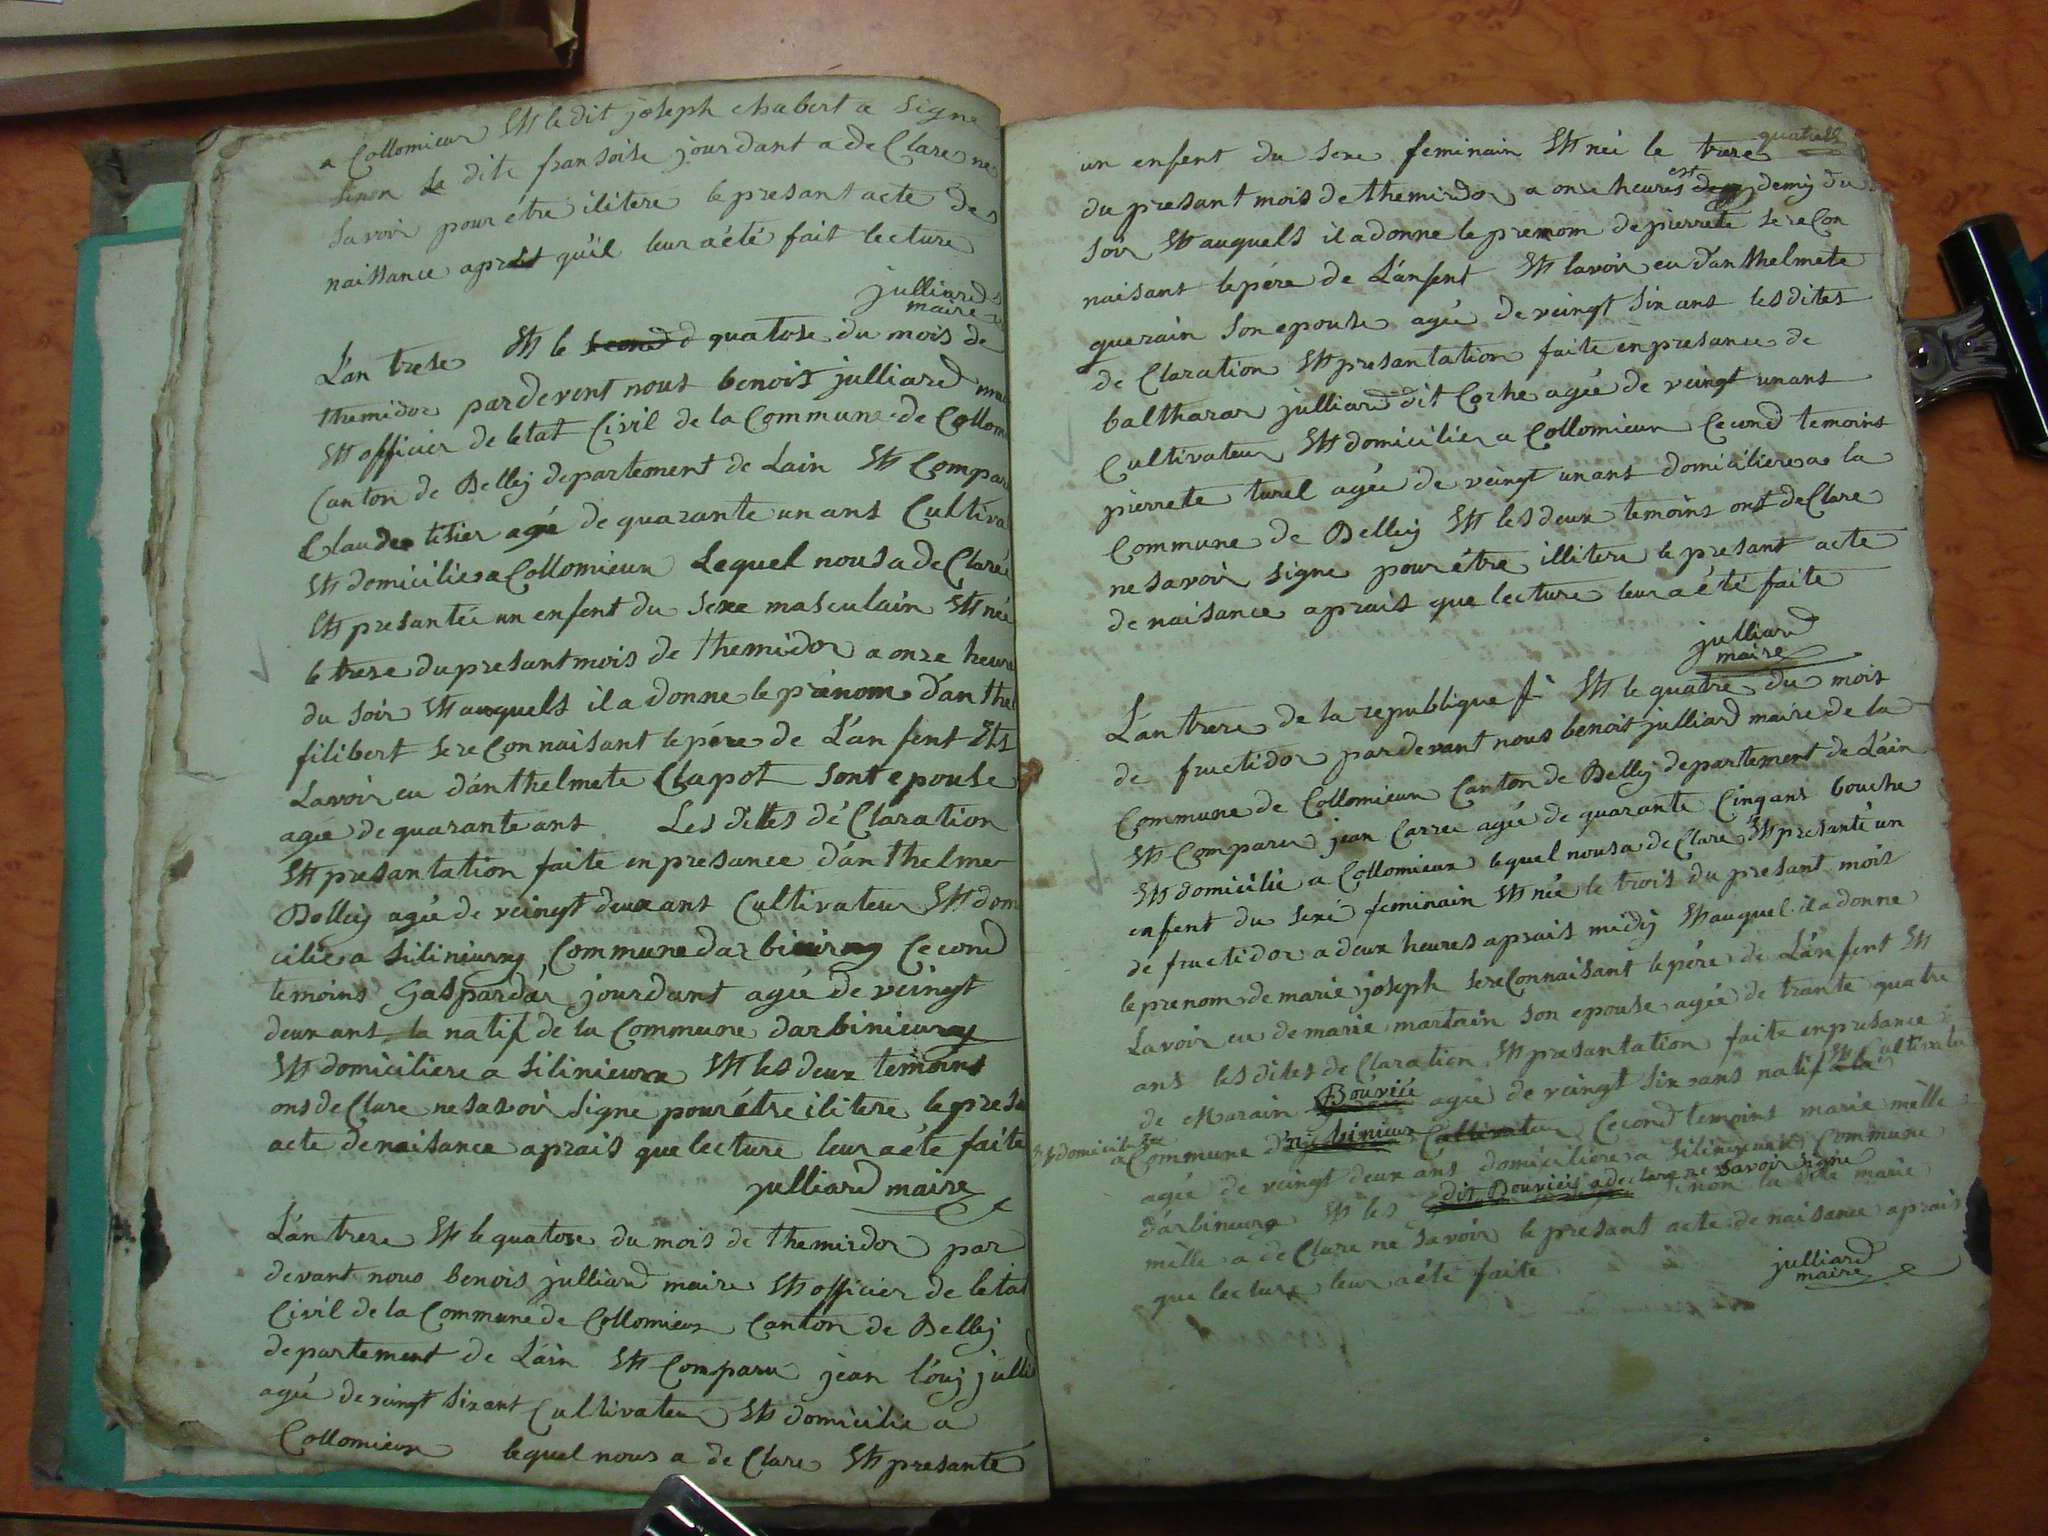 a Collomieux Et le dit joseph chabert a signe
sinon la dite fransoise jourdant a de Clare ne
savoir pour etre ilitere le presant acte de
naissance aprest qu'il leur a été fait lecture
julliard
maire
L'an trese Et le second quatose du mois de
themidor pardevent nous benois julliard
Et officier de letat Civil de la Commune de Collom
Canton de Belley departement de Lain Et Compar
Claude tisier agé de quarante un ans Cultiva
Et domicilie a Collomieux Lequel nous a de Claré
Et presantéi un enfent du sexe masculain Et néi
le trese du presant mois de themidor a onze heure
du soir Et auquels il a donne le prénom d'an thel
filibert se re Connaisant le pére de L'anfent Et
Lavoir eu d'anthelmete Clapot sont epouse
agée de quarante ans Les dittes dé Claration
Et presantation faite en presance d'anthelme
Bolley agée de veingt deux ans Cultivateur Et dom
cilie a silinieux Commune darbinieux Cecond
temoins Gasparde jourdant agée de veingt
deux ans la natif de la Commune darbinieux
Et domiciliere a silinieux Et les deux temoins
ons de Clare ne savoir signe pour étre ilitere le presa
acte de naisance aprais que lecture leur a éte faite
julliard maire
L'an trese Et le quatose du mois de themirdor par
devant nous benois julliard maire Et officier de letat
Civil de la Commune de Collomieux Canton de Belley
departement de L'ain Et Comparu jean l'ouij jullid
agée de veingt six ant Cultivateur Et domicilie a
Collomieux lequel nous a de Clare Et presante
quatre
un enfent du sexe feminain Et néi le trese
du presant mois de themirdor a onse heures et demij du
soir Et auquels il a donne le premom de pierrete se re Con
naisant le pére de L'anfent Et lavoir eu d'anthelmete
guerain son epouse agée de veingt six ans les dites
de Claration Et presantation faite en presance de
balthazar julliard dit Coche agée de veingt un ans
Cultivateur Et domicilie a Collomieux Cecond temoins
pierrete turel agée de veingt un ans domiciliere a la
Commune de Belley Et les deux temoins ont de Clare
ne savoir signe pour étre illitere le presant acte
de naisance aprais que lecture leur a été faite
julliard
maire
L'an trese de la republique f Et le quatre du mois
de fructidor pardevant nous benoit julliard maire de la
Commune de Collomieux Canton de Belley departement de L'ain
Et Comparu jean Carree agée de quarante Cinq ans bouche
Et domicilie a Collomieux lequel nous a de Clare Et presanté un
enfent du sexe feminain Et née le trois du presant mois
de fructidor a deux heures aprais midij Et auquel il a donne
le prenom de marie joseph se re Connaisant le pére de L'anfent Et
Lavoir eu de marie martain son epouse agée de trante quatre
ans les dites de Claration Et presantation faite en presance
de Marain Bouvié agée de veingt six ans natif Et Cultivateu
Et domicilie a Commune d'arbinieux Cultivateur Cecond temoins marie mélle
agée de veingt deux ans domiciliere a silinieux Commune
d'arbinieux Et les dit Bouvier a de clare ne savoir signe
sinon la dite marie
mélle a de Clare ne savoir le presant acte de naisance aprais
que lecture leur a été faite
julliard
maire